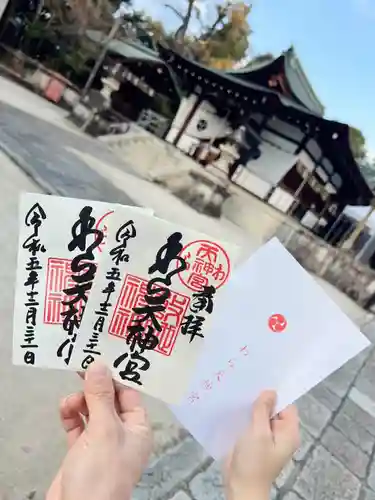 令和五年十二月三十一日
わら天
奉拝
わら天神宮
令和五年十二月三十一日
わら天神宮